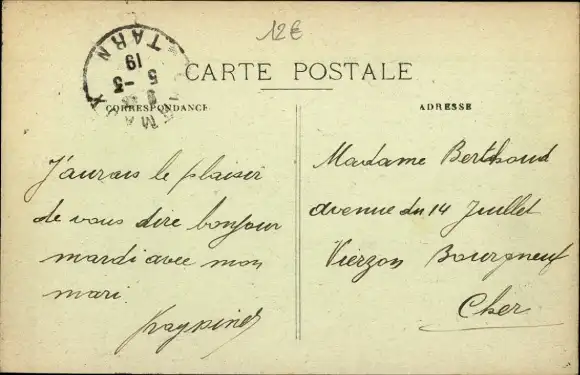 12€
TARN
19
5 -3
CARTE POSTALE
CORRESPONDANCE
ADRESSE
J'aurais le plaisir
de vous dire bonjour
mardi avec mon
mari.
Madame Berthoud
avenue du 14 Juillet
Vierzon Bourgneuf
Cher